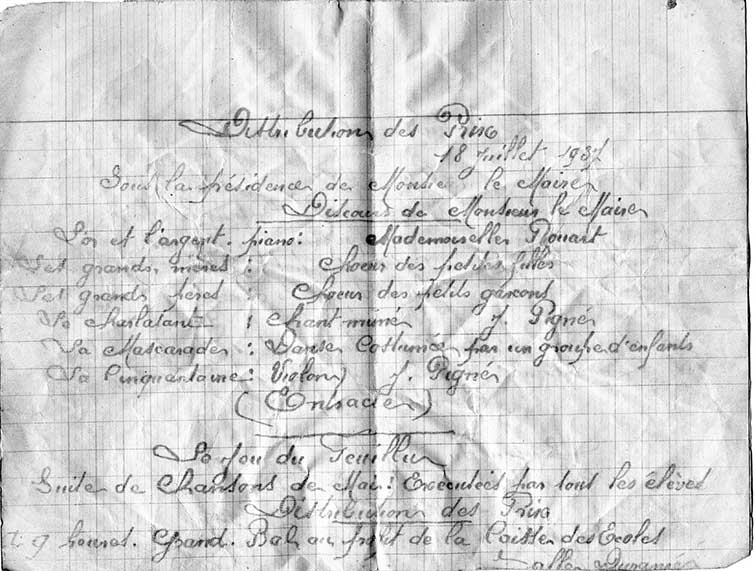 Distribution des Prix
18 Juillet 1937
Sous la présidence de Monsieur le Maire
Discours de Monsieur le Maire
L'or et l'argent. piano: Mademoiselle Rouart
Les grands mères : Choeur des petites filles
Les grands pères : Choeur des petits garçons
Le Charlatant : Chant mimé J. Pigné
La Mascarade : Danse Costumée par un groupe d'enfants
La Cinquantaine : Violon J. Pigné
(Entracte)
Le Jou du Feuillu
Suite de Chansons de Mai : Executées par tout les élèves
Distribution des Prix
9 heures. Grand. Bal au profit de la Caisse des Ecoles
Salle